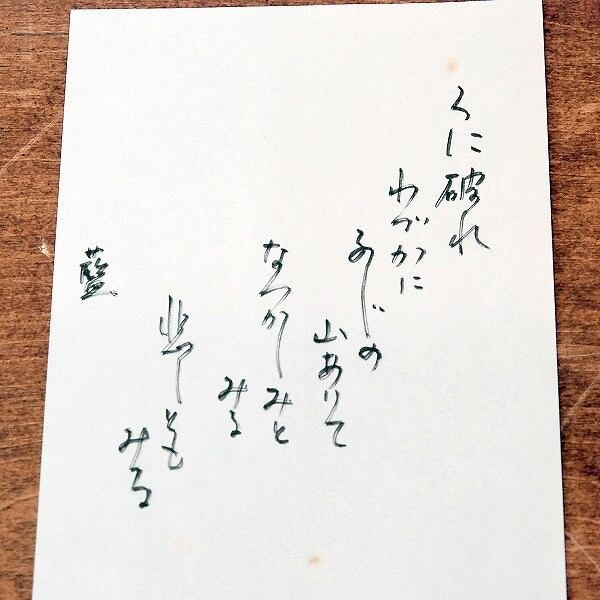 くに破れ
わづかに
ふじの
山ありて
なつかしみと
みる
悲しとも
みる
藍